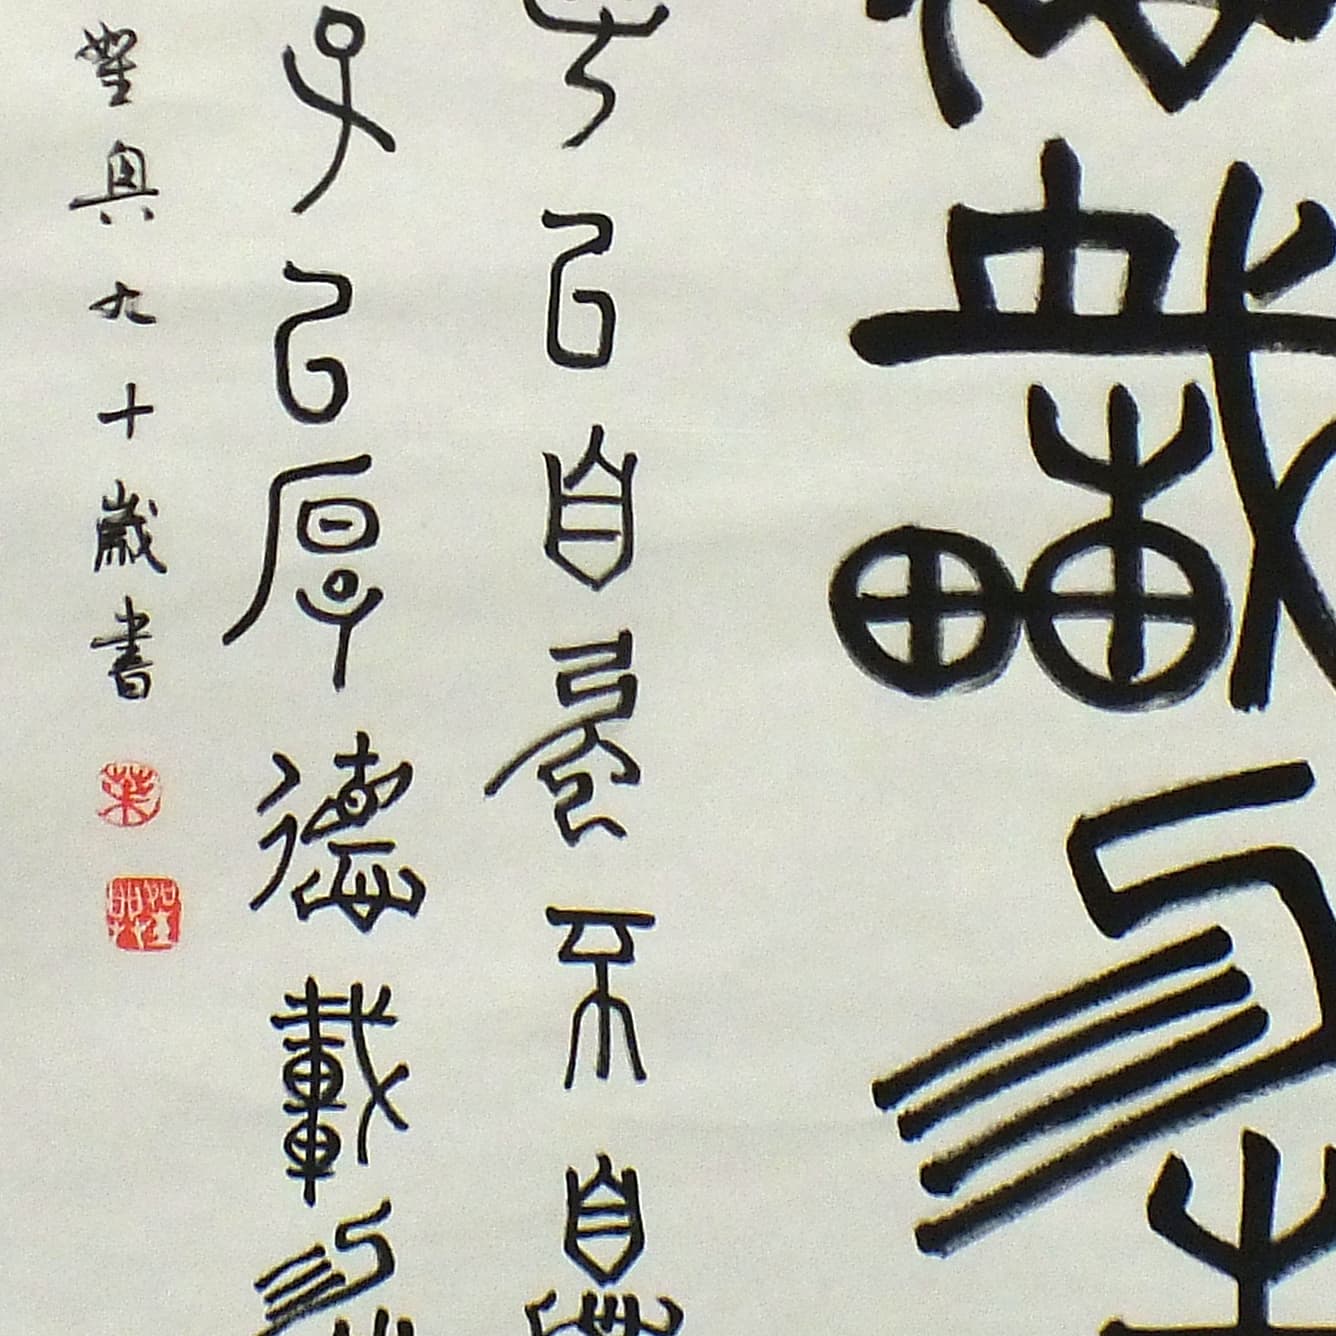 載物
以自強不息
子以厚德載物
九十歲書